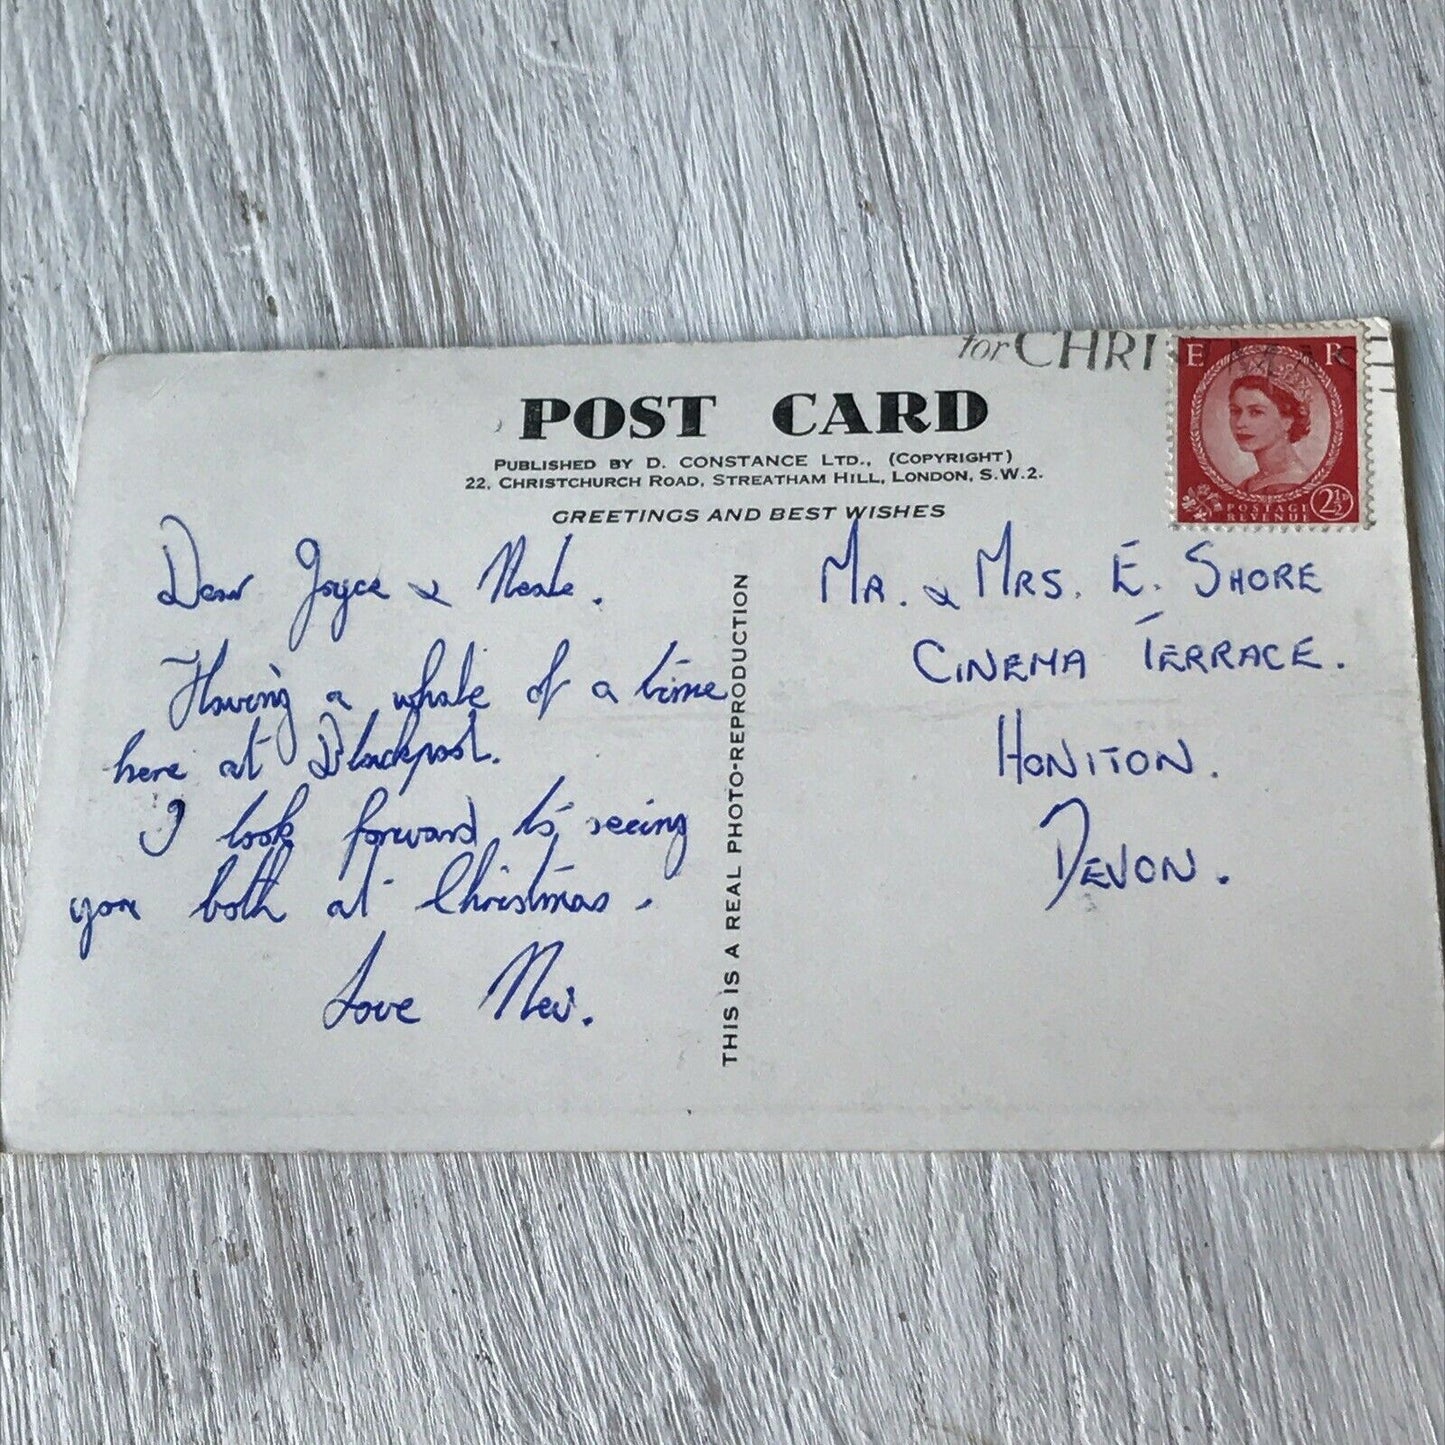 for CHRISTMAS
POST CARD
PUBLISHED BY D. CONSTANCE LTD., (COPYRIGHT)
22, CHRISTCHURCH ROAD, STREATHAM HILL, LONDON, S.W.2.
GREETINGS AND BEST WISHES
E R
POSTAGE
REVENUE
2½D
Dear Joyce &
Having a whale of a time
here at Blackpool.
I look forward to seeing
you both at Christmas.
Love
THIS IS A REAL PHOTO-REPRODUCTION
MR. & MRS. E. SHORE
CINEMA TERRACE.
HONITON.
DEVON.